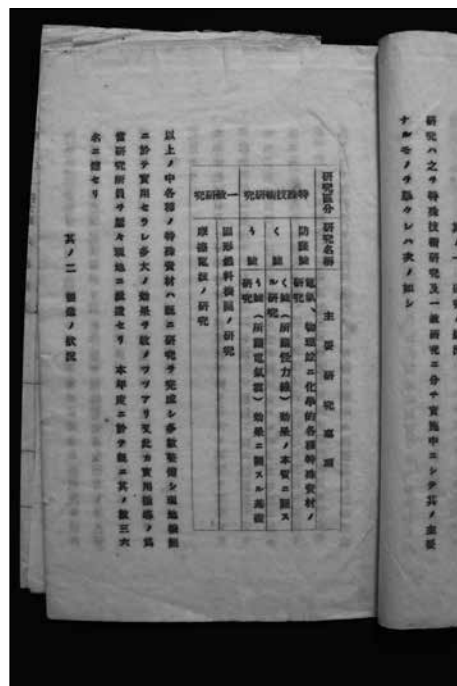 研究ハ之ヲ特殊技術研究及一般研究ニ分チ實施中ニシテ其ノ主要
ナルモノヲ擧クレハ次ノ如シ
研究區分 研究名稱 主要研究事項
特殊技術研究 防諜
電氣、物理竝ニ化學的各種特殊資材ノ
研究
く號 く號(所謂怪力線)效果ノ本質ニ關ス
ル研究
う號 う號(所謂電氣雲)效果ニ關スル基礎
研究
一般研究 固形燃料機關ノ研究
電波ノ研究
以上ノ中各種ノ特殊資材ハ既ニ研究ヲ完成シ多數整備シ現地機關
ニ於テ實用セラレ多大ノ效果ヲ收メツツアリ又此カ實用指導ノ爲
當研究所員ヲ屢々現地ニ派遣セリ 本年度ニ於テ既ニ其ノ數三六
名ニ達セリ
其ノ二 ノ狀況